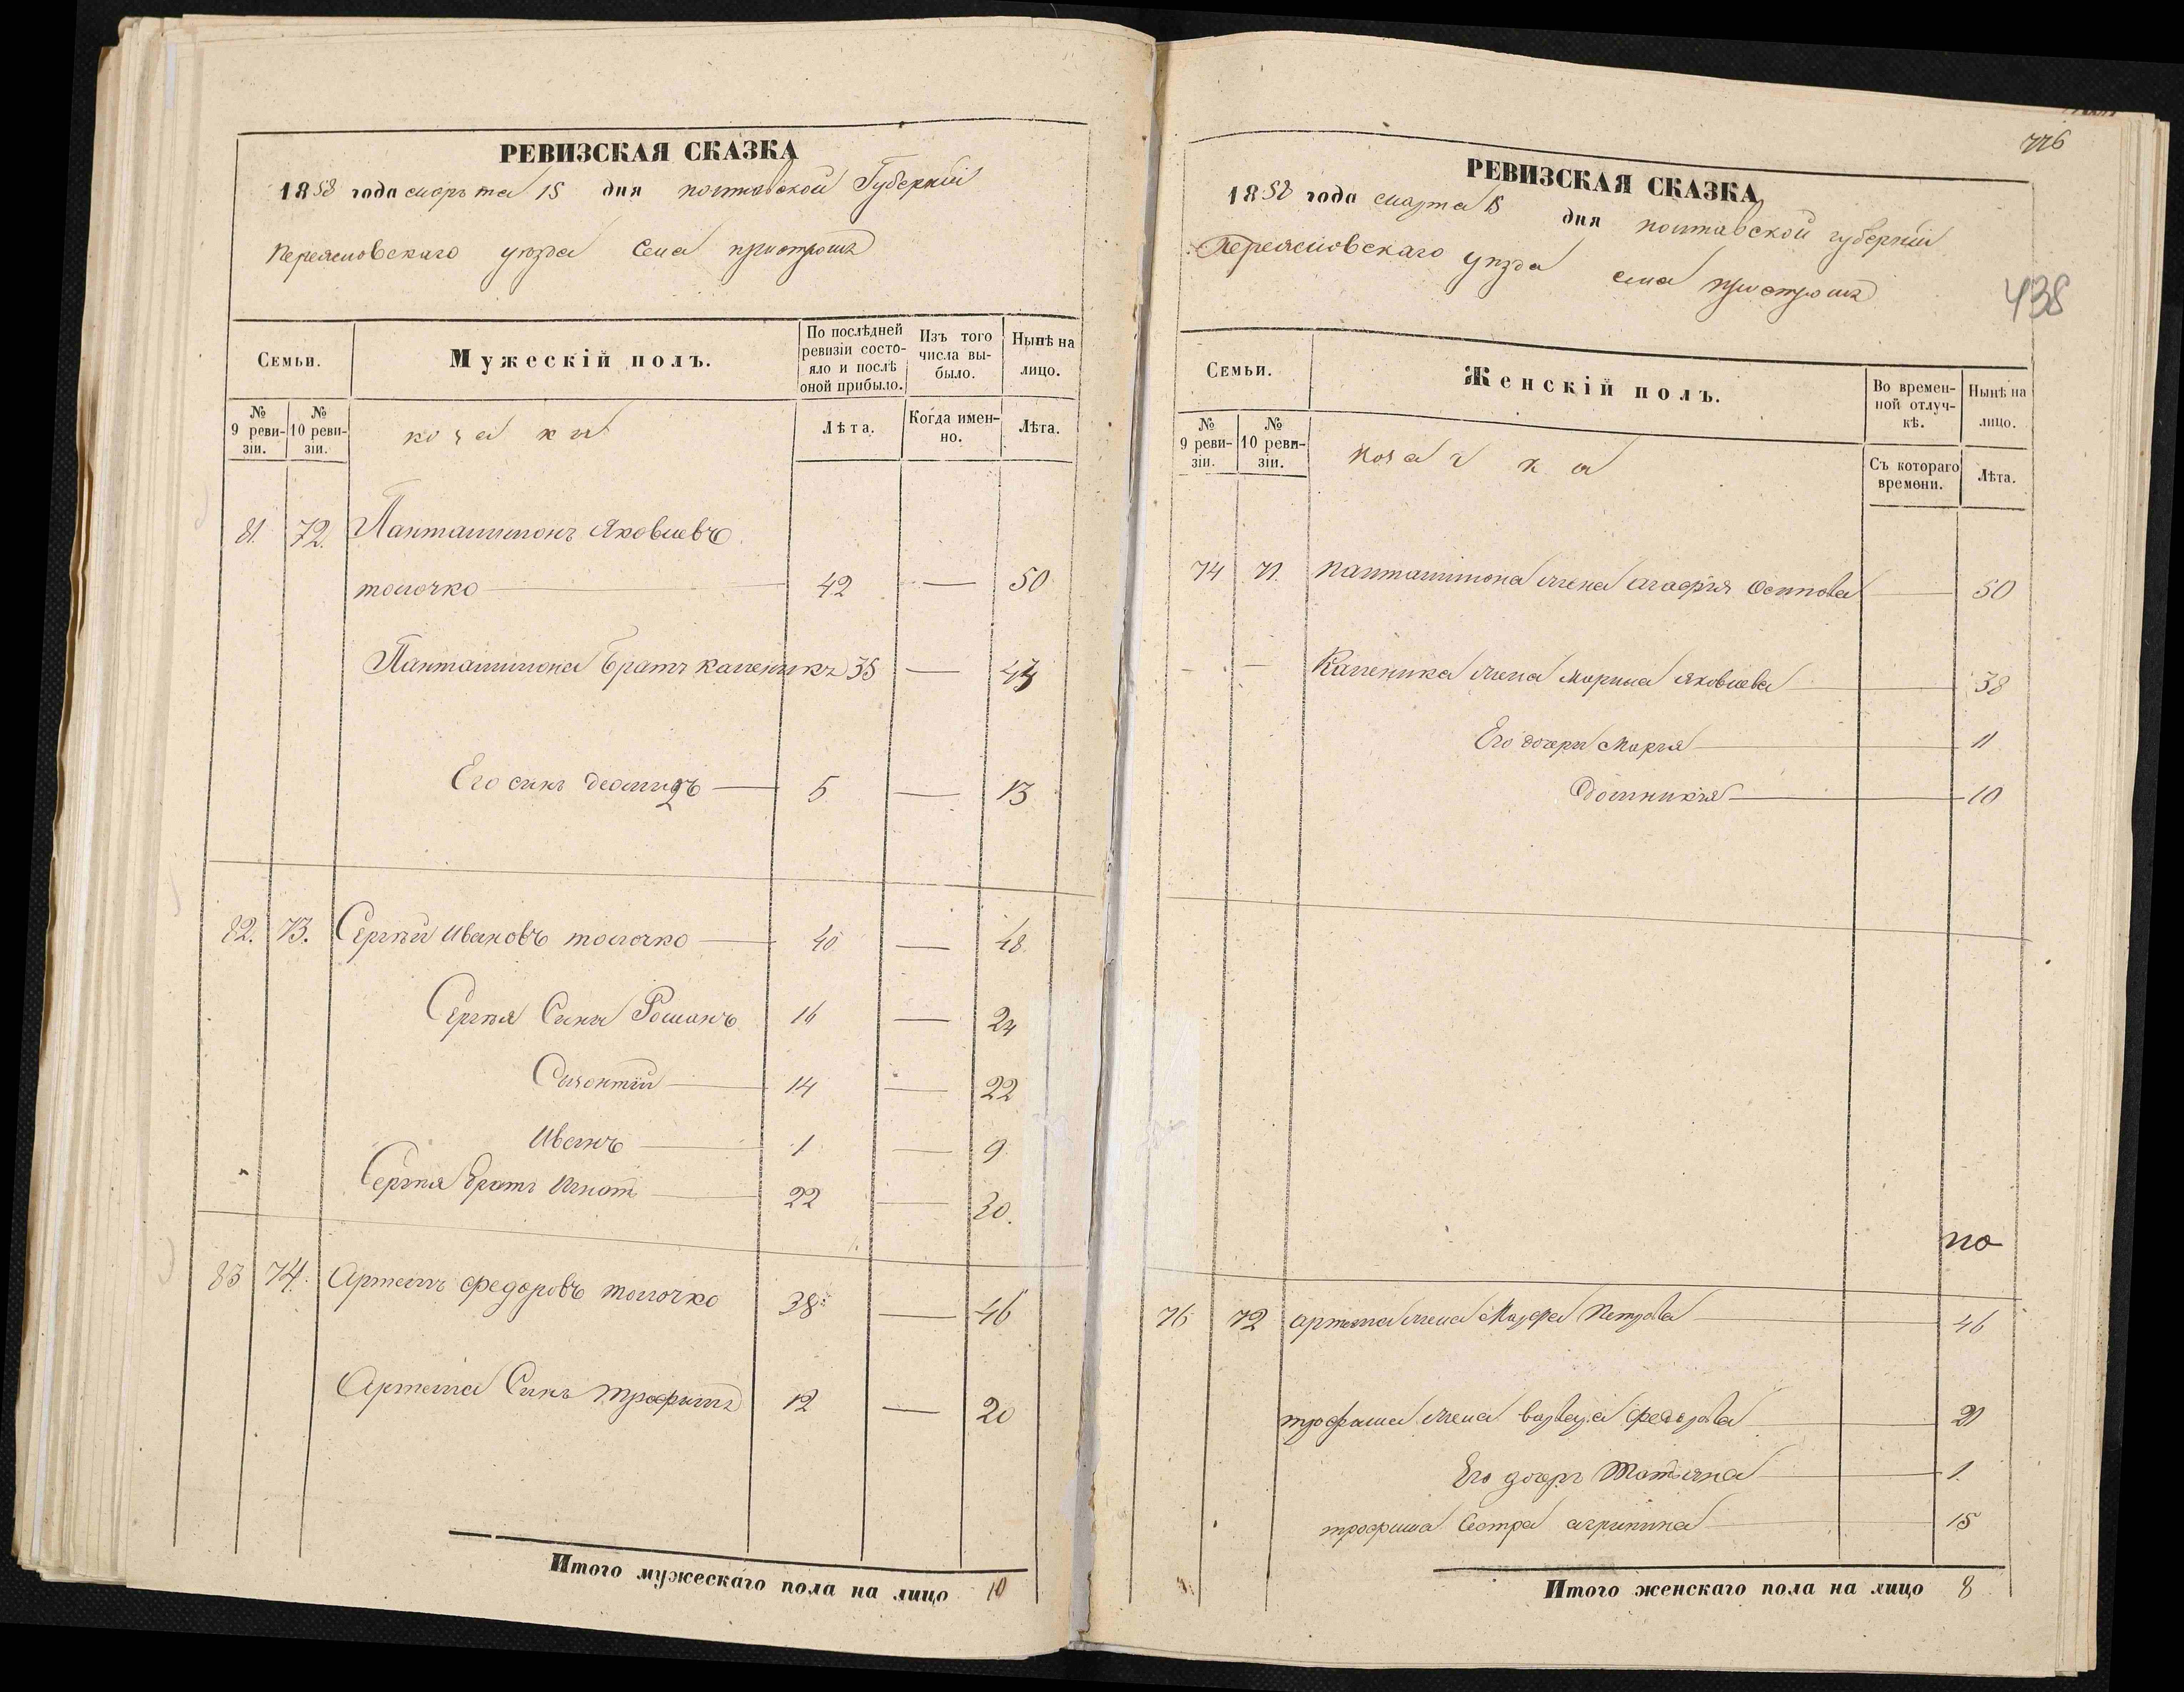 РЕВИЗСКАЯ СКАЗКА
1858 года марта 15 дня полтавской Губернии
Переясловскаго уезда Села
Семьи.
Мужескій полъ.
По послѣдней ревизіи состояло и послѣ оной прибыло.
Изъ того числа выбыло.
Нынѣ на лицо.
№ 9 ревизіи.
№ 10 ревизіи.
козаки
Лѣта.
Когда именно.
Лѣта.
81. 72. Панталимонъ Яковлевъ
толочко 42 — 50
Панталимона братъ каленикъ 35 — 43
Его синъ деомидъ 5 — 13
82. 73. Сергѣй Ивановъ толочко 40 — 48
Сергѣя Сини Романъ 16 — 24
Созонтій 14 — 22
Иванъ 1 — 9
Сергѣя братъ Игнат 22 — 30.
83 74. Артемъ федоровъ толочко 38 — 46
Артема Синъ трофимъ 12 — 20
Итого мужескаго пола на лицо 10
776
438
РЕВИЗСКАЯ СКАЗКА
1858 года марта 15 дня полтавской губернии
Переясловскаго уезда села
Семьи.
Женскій полъ.
Во временной отлучкѣ.
Нынѣ на лицо.
№ 9 ревизіи.
№ 10 ревизіи.
козачки
Съ котораго времени.
Лѣта.
74 71. панталимона жена агафія Осипова — 50
— — Каленика жена марина яковлева 38
Его дочери Марія 11
Домникія 10
по
76 72 артема жена Марфа Петрова 46
трофима жена варвара федорова 21
Его дочерь Татіяна 1.
трофима Сестра агрипина 15
Итого женскаго пола на лицо 8